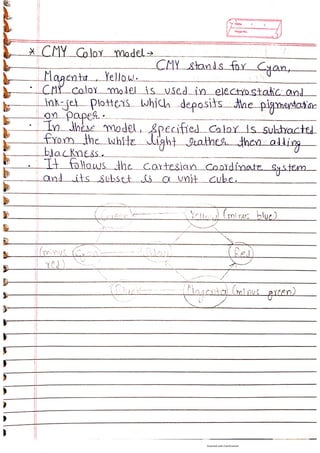 * CMY Color model →
CMY stands for Cyan,
Magenta, Yellow.
• CMY color model is used in electrostatic and
Ink-jet plotters which deposits the pigmentation
on paper.
• In these model, specified color is subtracted
from the white light rather then adding
blackness.
• It follows the cartesian coordinate system
and its subset is a unit cube.
Green Yellow (minus blue)
(minus red) Red
Magenta (minus green)
Scanned with CamScanner